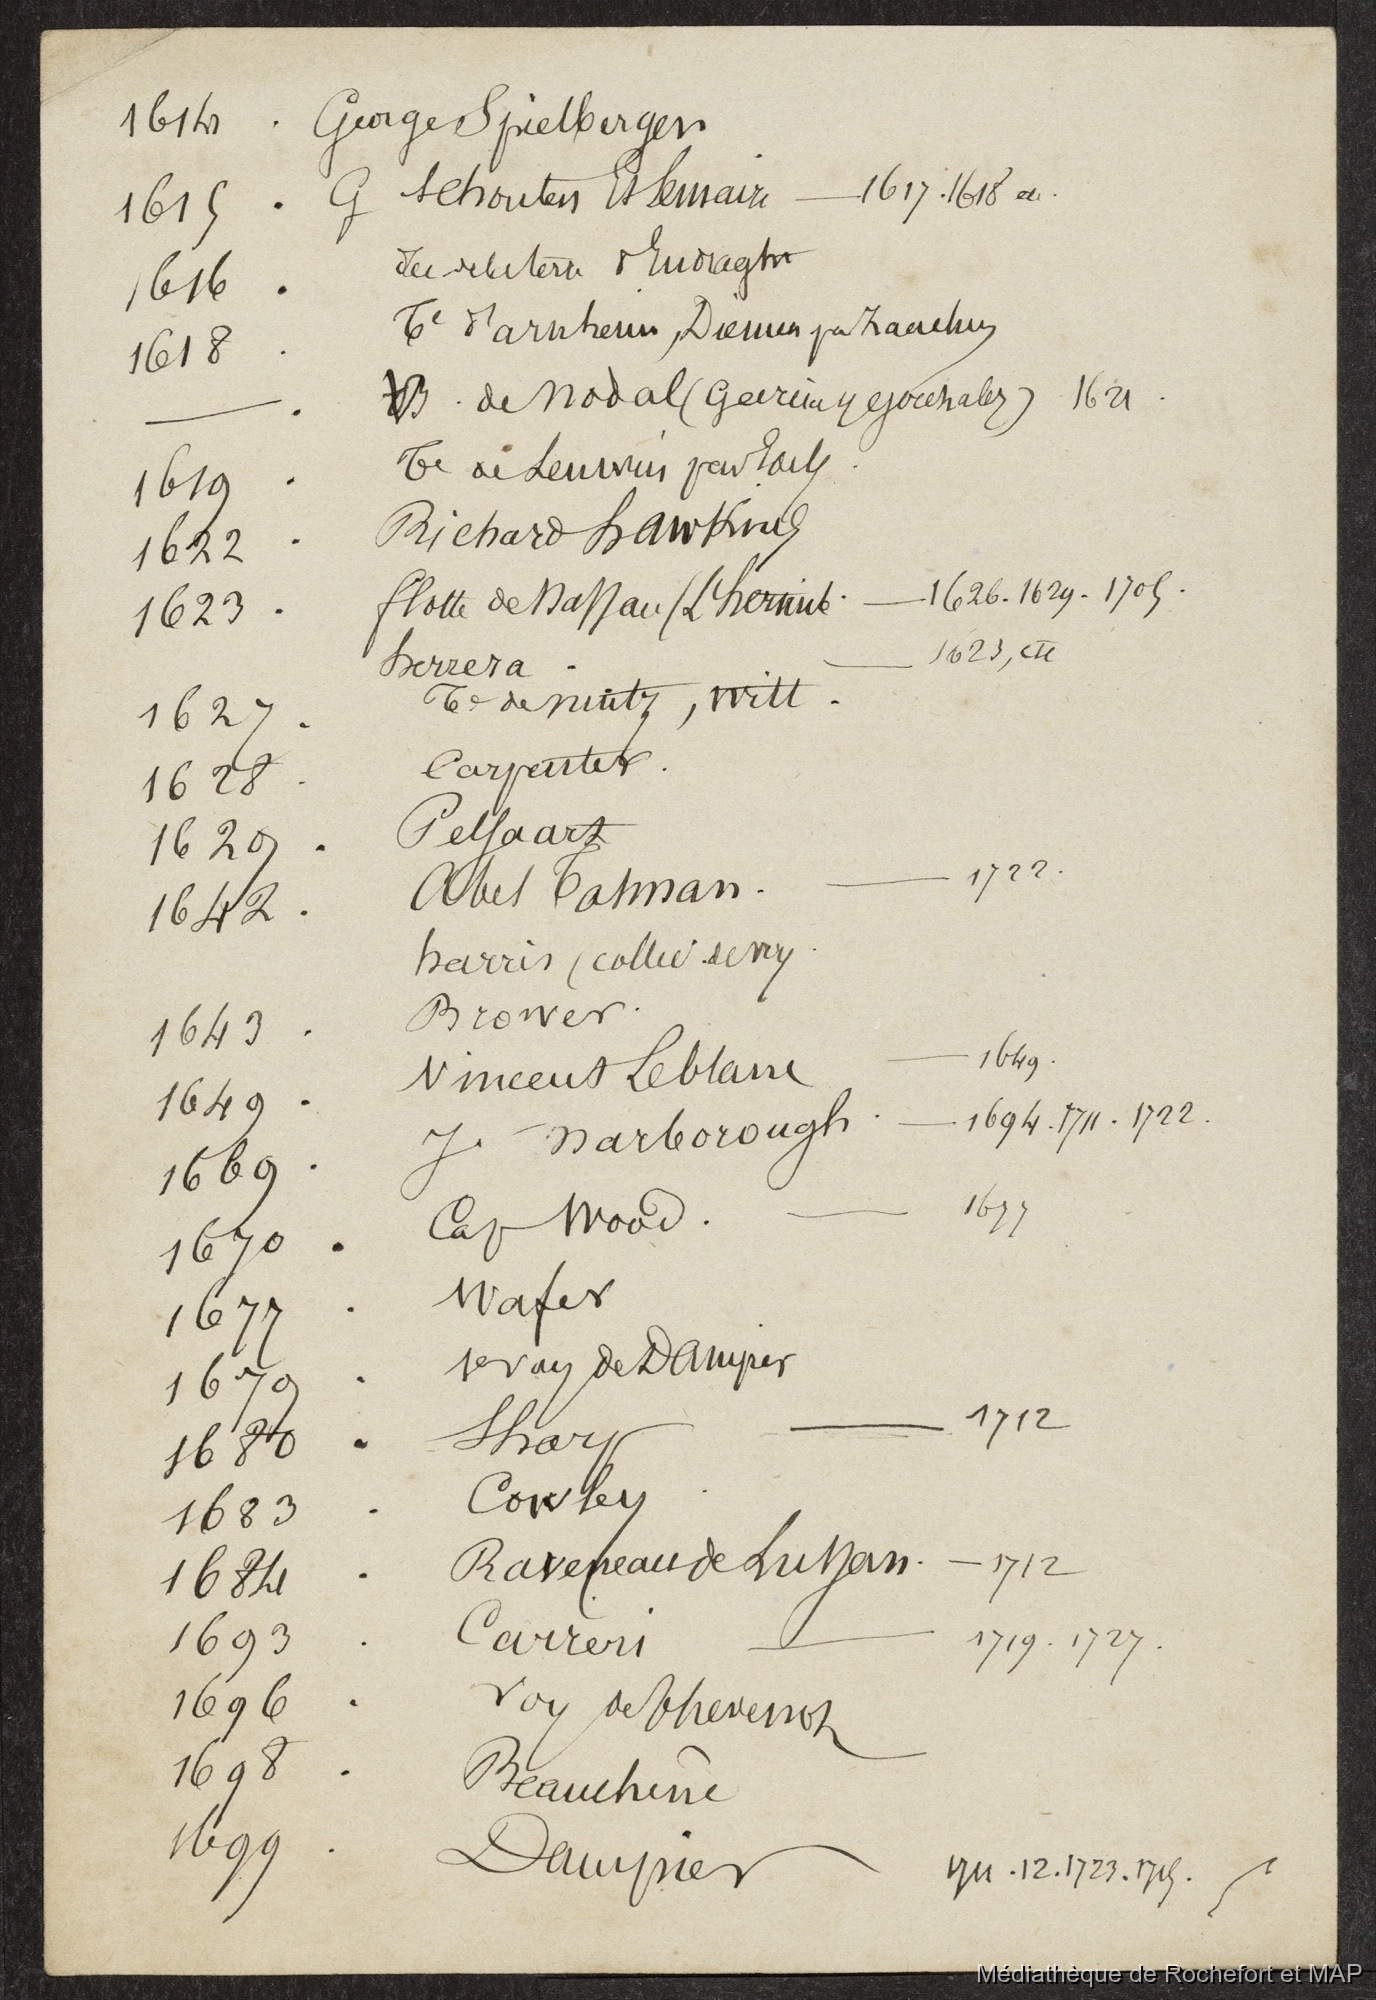 1614 . George Spielbergen
1615 . G Schouten Et Lemaire — 1617 . 1618 etc.
1616 . d'Endraght
1618 . Te d'arnheim, Diemen par Zaechen
— . B . de Nodal ( 1621 .
1619 . Te de Leuwin par Edels .
1622 . Richard hawkins
1623 . flotte de Nassau (L'hermite . — 1626 . 1629 . 1705 .
herrera . — 1623, etc
1627 . Te de nuitz, Witt .
1628 . Carpenter .
1629 . Pelsaart
1642 . Abel Tasman . — 1722 .
harris (collec de voy .
1643 . Brower .
1649 . Vincent Leblanc — 1649 .
1669 . J. Narborough . — 1694 . 1711 . 1722 .
1670 . Cap Wood . — 1677
1677 . Wafer
1679 . 1er voy de Dampier
1680 . Sharp — 1712
1683 . Cowley .
1684 . Raveneau de Lussan . — 1712
1693 . Carreri — 1719 . 1727 .
1696 . voy de thevenot
1698 . Beauchene
1699 . Dampier 1711 . 12 . 1723 . 1715 .
Médiathèque de Rochefort et MAP